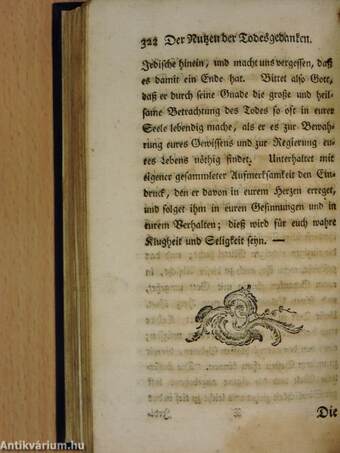 322 Der Nutzen der Todesgedanken.
Irdische hinein, und macht uns vergessen, daß
es damit ein Ende hat. Bittet also Gott,
daß er durch seine Gnade die große und heil-
same Betrachtung des Todes so oft in eurer
Seele lebendig mache, als er es zur Bewah-
rung eures Gewissens und zur Regierung eu-
res Lebens nöthig findet. Unterhaltet mit
eigener gesammleter Aufmerksamkeit den Ein-
druck, den er davon in eurem Herzen erreget,
und folget ihm in euren Gesinnungen und in
eurem Verhalten; dieß wird für euch wahre
Klugheit und Seligkeit seyn. —
Die
Antikvárium.hu